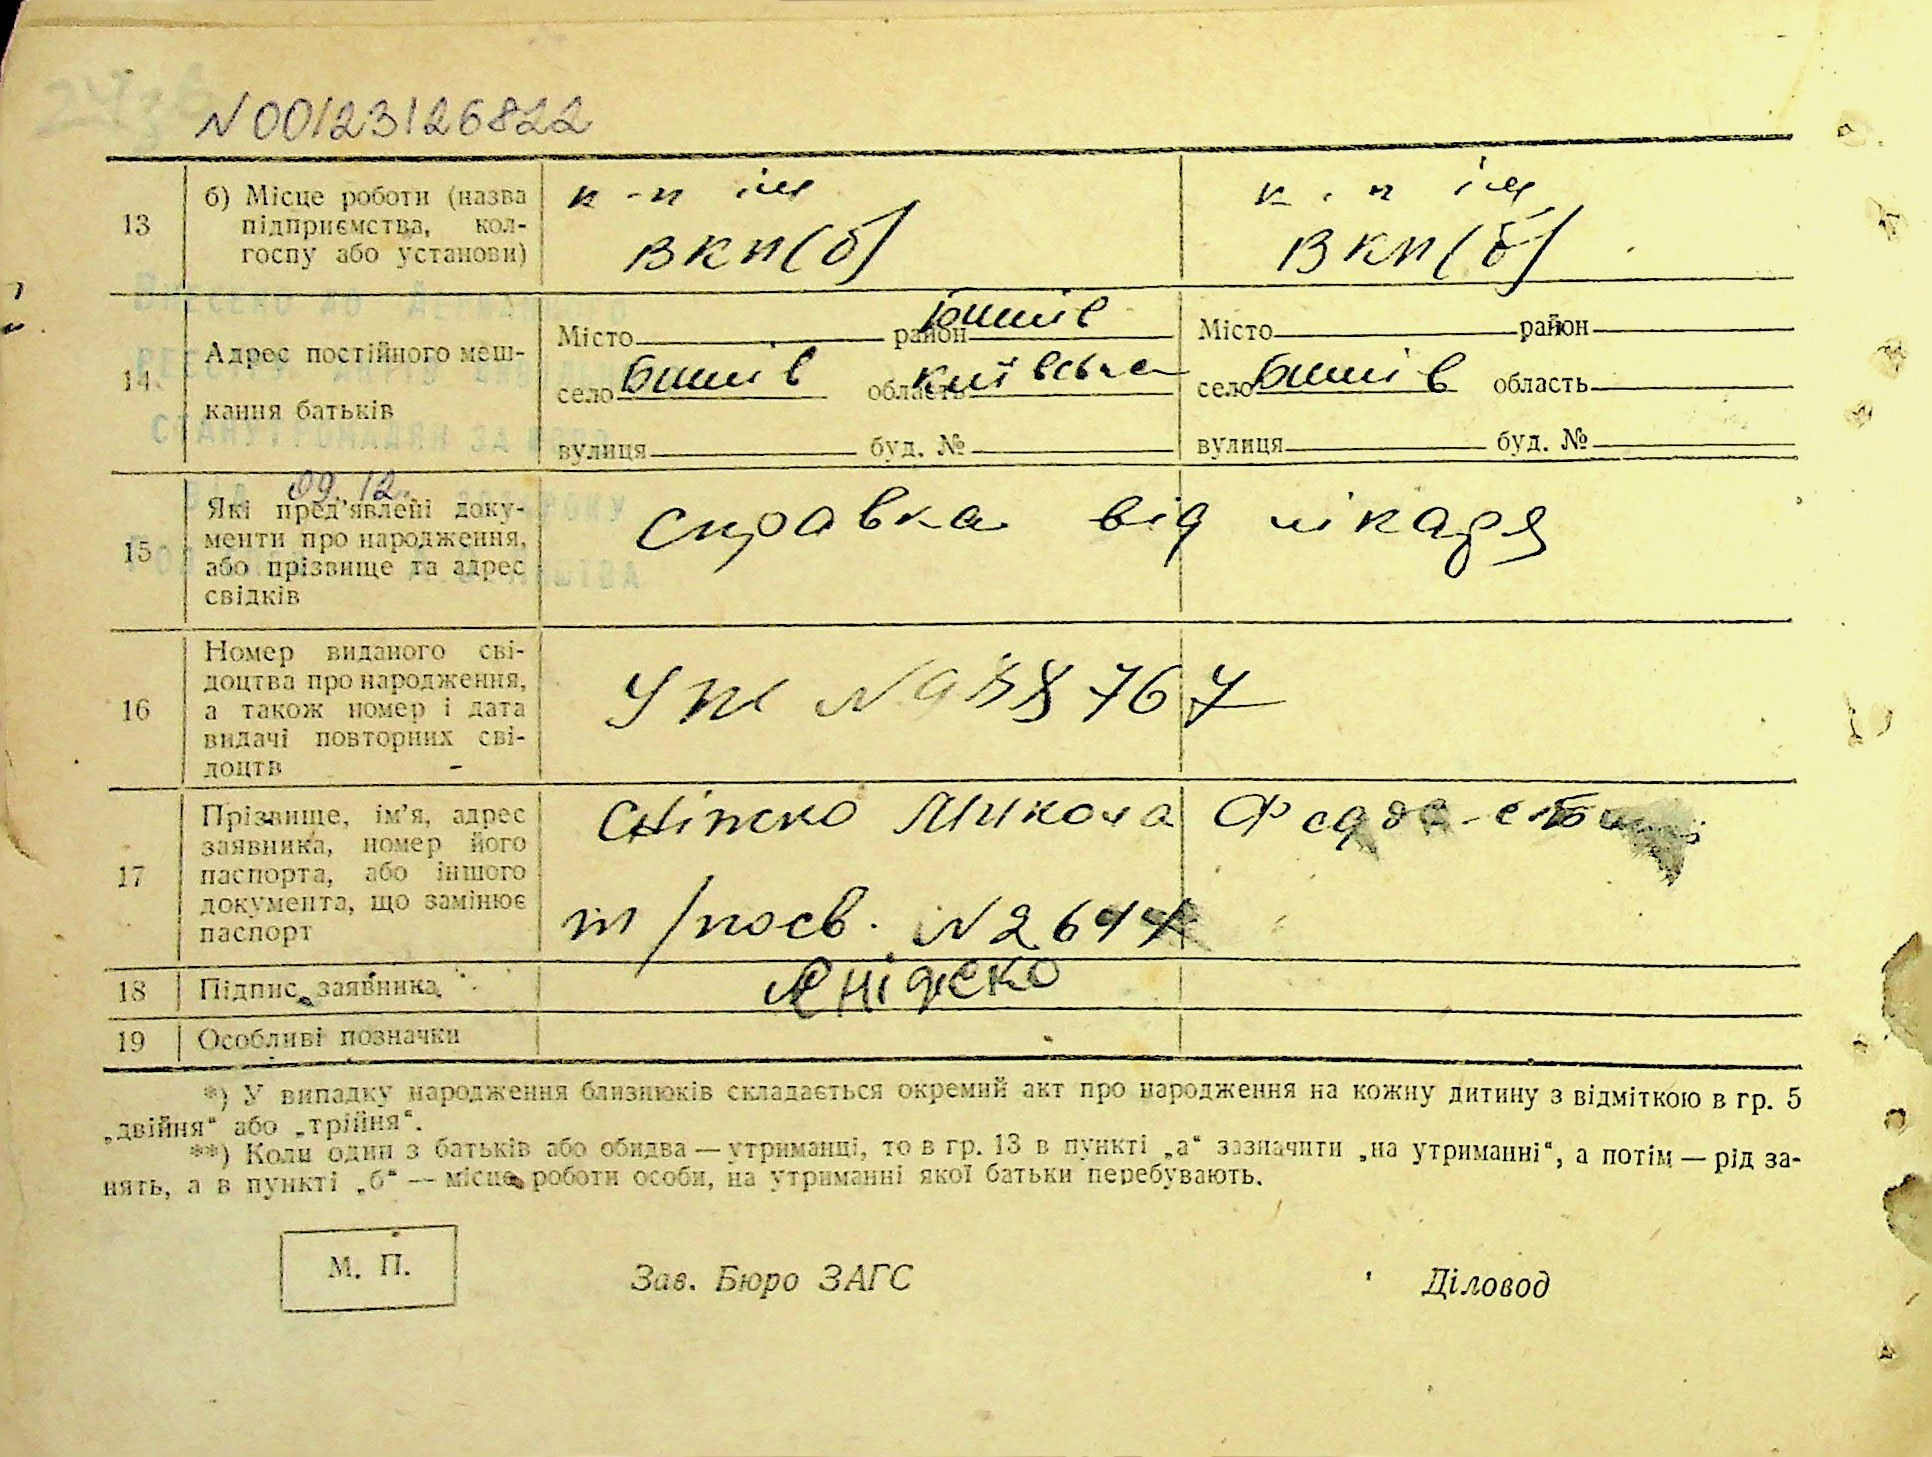 N 00123126822
13
б) Місце роботи (назва
підприємства, кол-
госпу або установи)
к-п ім
ВКП(б)
к-п ім
ВКП(б)
14
Адрес постійного меш-
кання батьків
Місто район Бишів
село Бишів область Київська
вулиця буд. №
Місто район
село Бишів область
вулиця буд. №
09.12.
15
Які пред’явлені доку-
менти про народження,
або прізвище та адрес
свідків
справка від лікаря
16
Номер виданого сві-
доцтва про народження,
а також номер і дата
видачі повторних сві-
доцтв
УЖ N 988767
17
Прізвище, ім’я, адрес
заявника, номер його
паспорта, або іншого
документа, що замінює
паспорт
Микола
т/посв. N 264
18
Підпис заявника
19
Особливі позначки
*) У випадку народження близнюків складається окремий акт про народження на кожну дитину з відміткою в гр. 5
„двійня“ або „трійня“.
**) Коли один з батьків або обидва — утриманці, то в гр. 13 в пункті „а“ зазначити „на утриманні“, а потім — рід за-
нять, а в пункті „б“ — місце роботи особи, на утриманні якої батьки перебувають.
М. П.
Зав. Бюро ЗАГС
Діловод